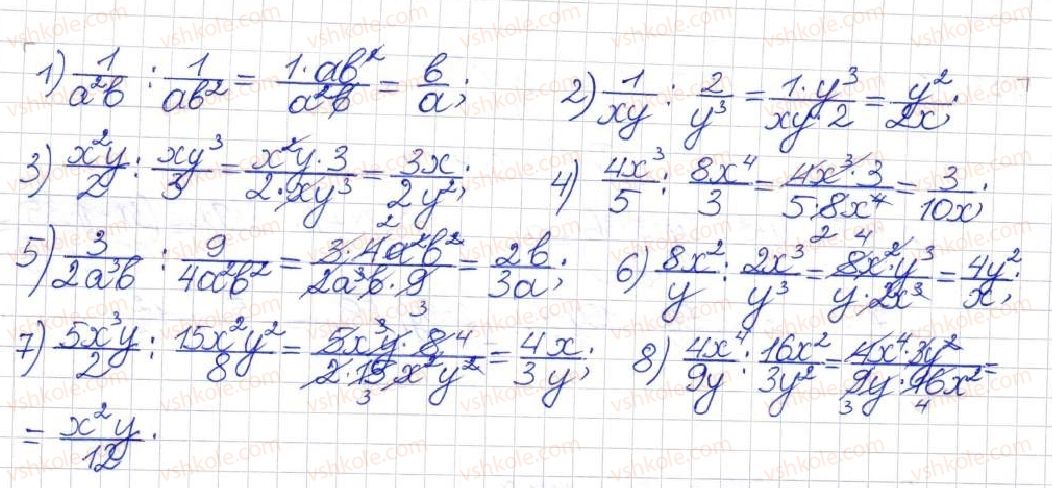 1) 1/a²b : 1/ab² = 1·ab²/a²b = b/a; 2) 1/xy : 2/y³ = 1·y³/xy·2 = y²/2x;
3) x²y/2 : xy³/3 = x²y·3/2·xy³ = 3x/2y²; 4) 4x³/5 : 8x⁴/3 = 4x³·3/5·8x⁴ = 3/10x;
5) 3/2a³b : 9/4a²b² = 3·4a²b²/2a³b·9 = 2b/3a; 6) 8x²/y : 2x³/y³ = 8x²·y³/y·2x³ = 4y²/x;
7) 5x³y/2 : 15x²y²/8 = 5x³y·8/2·15x²y² = 4x/3y; 8) 4x⁴/9y : 16x²/3y² = 4x⁴·3y²/9y·16x² =
= x²y/12.
vshkole.com